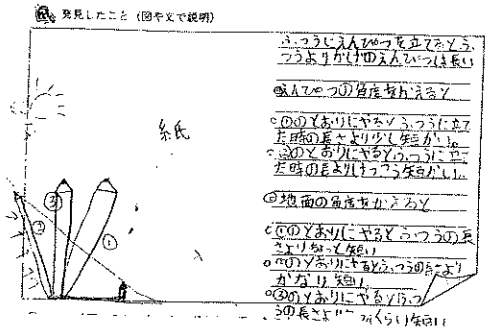 発見したこと（図や文で説明）
ふつうにえんぴつを立てたとふ
つうよりかげのえんぴつは長い
えんぴつの角度をかえると
①のとおりにやるとふつうに立て
た時の長さより少し短かい。
③のとおりにやるとふつうに立
た時の長よりけっこう短かい。
地面の角度をかえると
①のとおりにやるとふつうの長
さよりもって短い
のとおりにやるとふつうの長より
かなり短い
③のとおりにやるとふつ
うの長さよ
くらい短い
紙
③
②
①